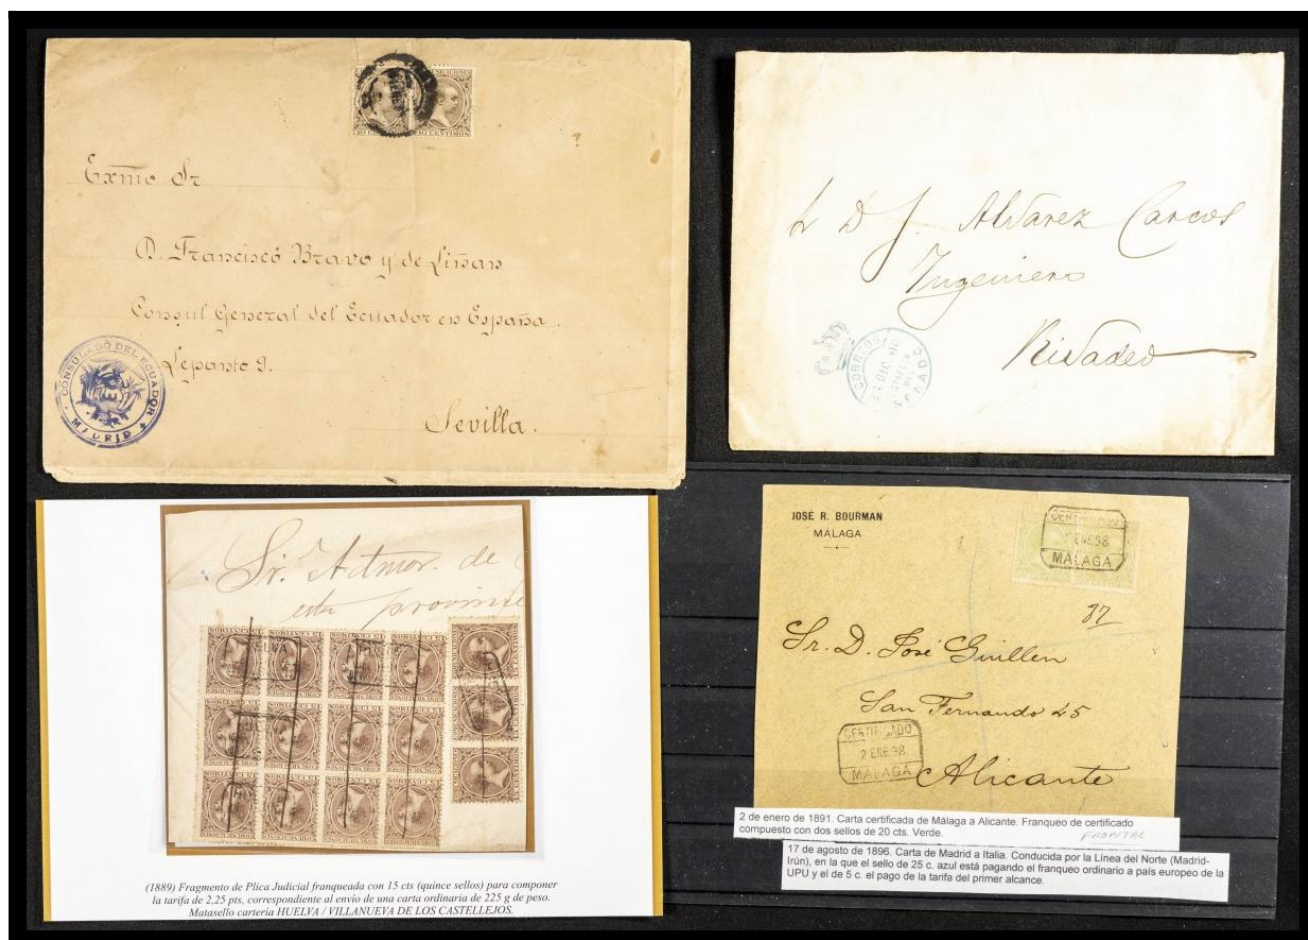 Exmo Sr
D. Francisco Bravo y de Liñan
Consul General del Ecuador en España.
Lepanto 9.
Sevilla.
CONSULADO DEL ECUADOR
MADRID
10 CENTIMOS
D J. Alvarez Carcos
Ingeniero
Rivadeo
CORREOS
SENADO
Sr. Admor. de
esta provinc
(1889) Fragmento de Plica Judicial franqueada con 15 cts (quince sellos) para componer
la tarifa de 2,25 pts, correspondiente al envio de una carta ordinaria de 225 g de peso.
Matasello cartería HUELVA / VILLANUEVA DE LOS CASTELLEJOS.
JOSE R. BOURMAN
MÁLAGA
CERTIFICADO
2 ENE 98
MÁLAGA
37
Sr. D. José Guillen
San Fernando 45
Alicante
CERTIFICADO
2 ENE 98
MÁLAGA
2 de enero de 1891. Carta certificada de Málaga a Alicante. Franqueo de certificado
compuesto con dos sellos de 20 cts. Verde.
FRONTAL
17 de agosto de 1896. Carta de Madrid a Italia. Conducida por la Línea del Norte (Madrid-
Irún), en la que el sello de 25 c. azul está pagando el franqueo ordinario a país europeo de la
UPU y el de 5 c. el pago de la tarifa del primer alcance.